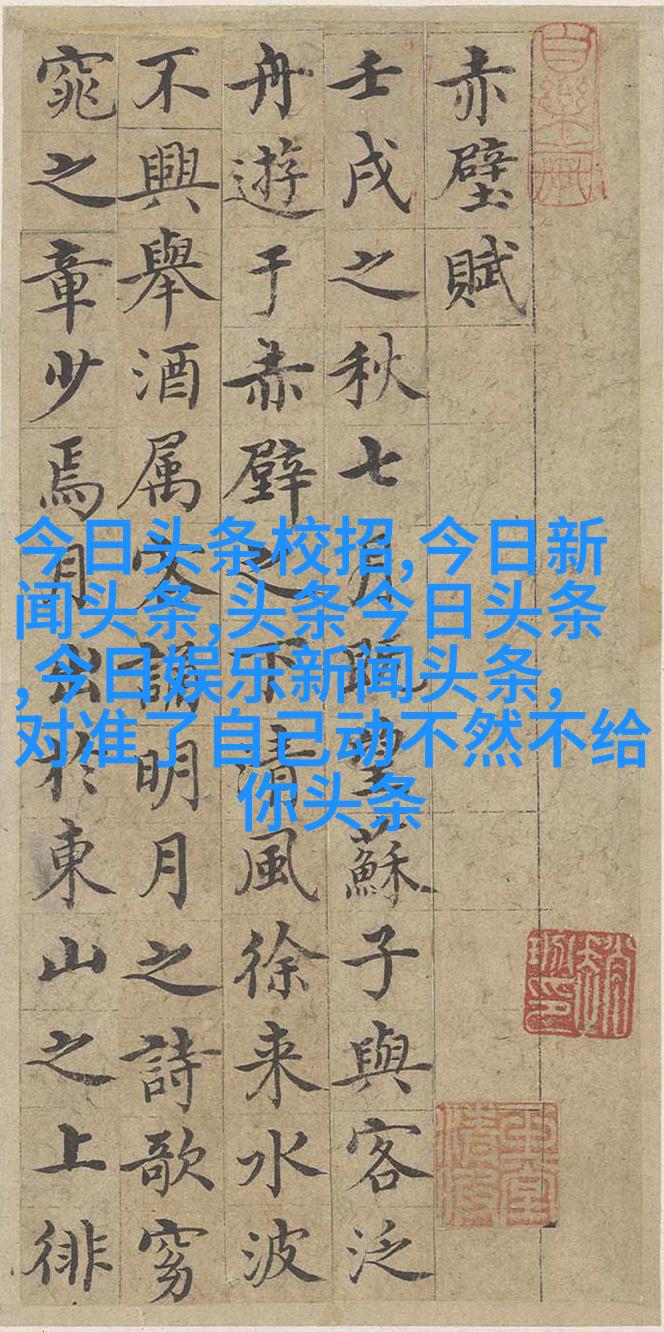 赤壁賦
壬戌之秋七月既望蘇子與客泛
舟遊于赤壁之下清風徐来水波
不興舉酒属客誦明月之詩歌窈
窕之章少焉月出於東山之上徘
今日头条校招,今日新
闻头条,头条今日头条
,今日娱乐新闻头条,
对准了自己动不然不给
你头条